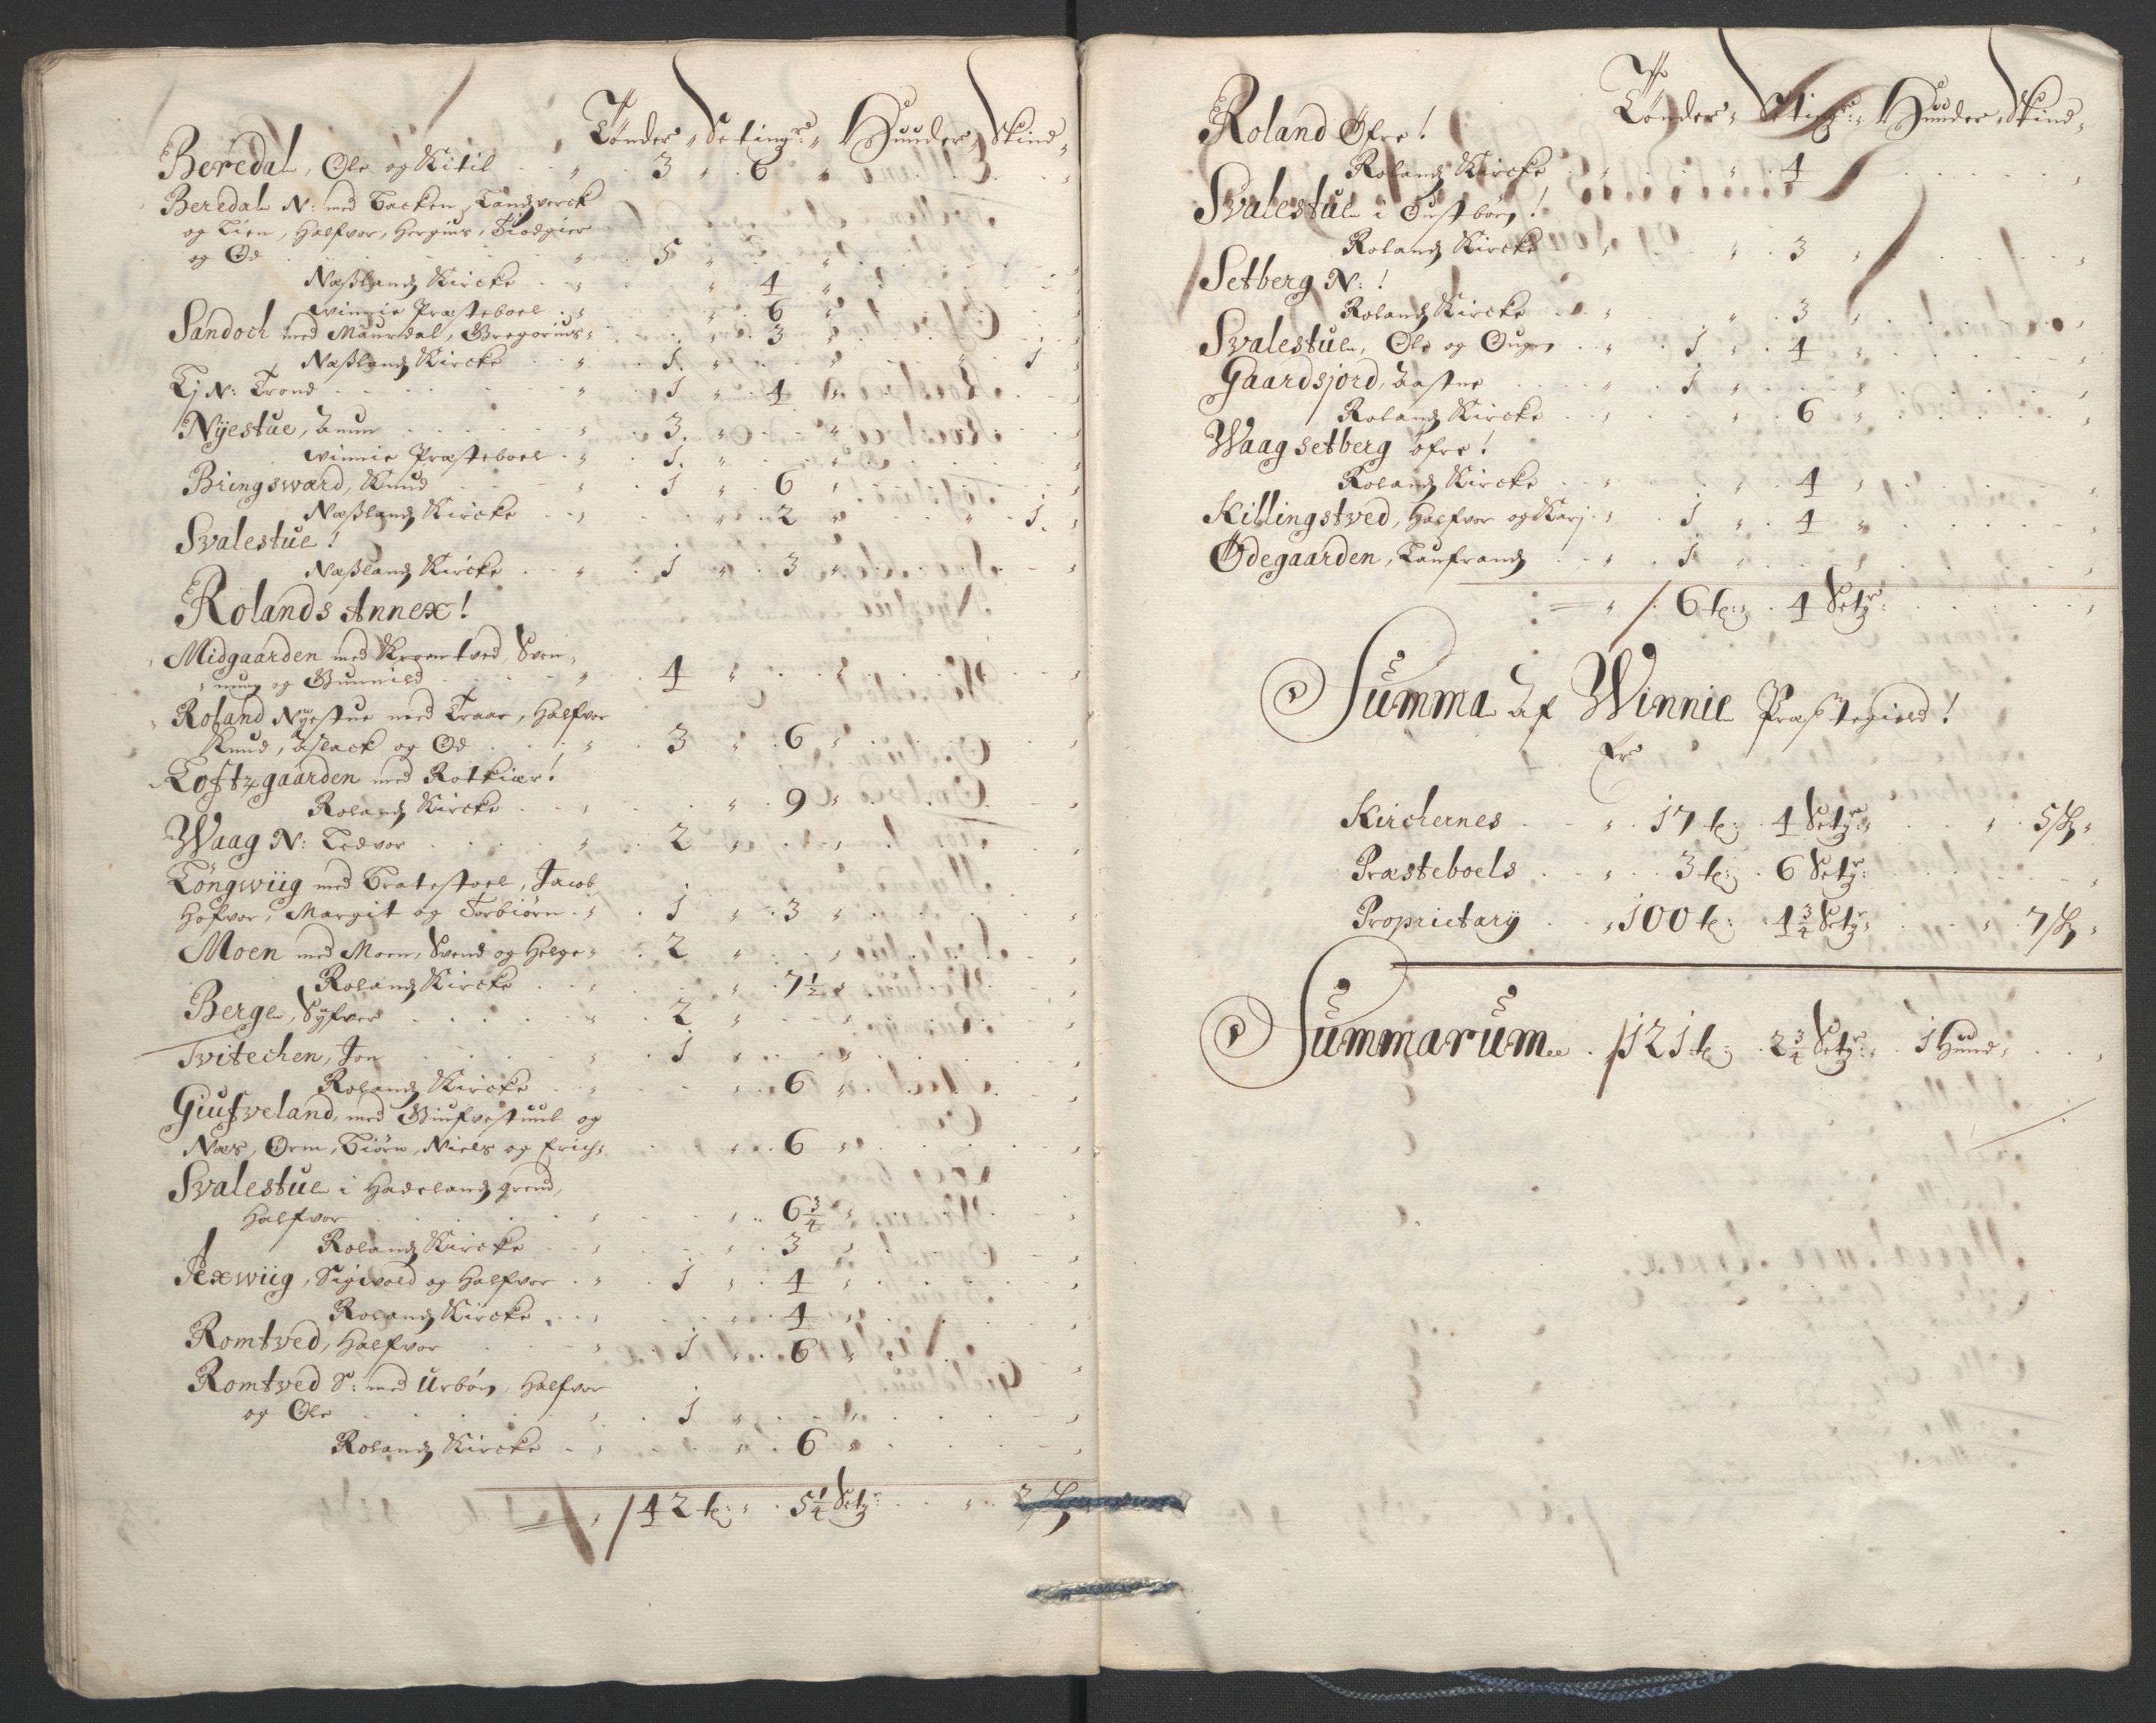 Tønder, Setingr: Huuder, Skind,
Beredal, Ole og Kitil 3 6
Beredal N: med Backen, Landzverck
og Lien, Halfvor, Hergius, Tiodgier
og Od 5
Næßlands Kircke 4
winnie Præsteboel 6
Sandoch med Maurdal, Gregorius 3
Næßlands Kircke 1 1
Lj N: Trond 1 4
Nÿestue, Anun 3
winnie Præsteboel 1
Bringsward, Knud 1 6
Næßlands Kircke 2 1
Svalestue!
Næßlands Kircke 1 3
Rolands Annex!
Midgaarden med Kromtved, Sven,
nung og Gunnild 4
Roland Nÿestue med Traae, Halfvor
Knud, Aslack og Od 3 6
Loftzgaarden med Rotkiær!
Rolands Kircke 9
Waag N: Ledvor 2
Töngwiig med Bratestoel, Jacob
Hofvor, Margit og Torbiörn 1 3
Moen med Moen, Svend og Helge 2
Rolands Kircke 7 1/2
Berge, Sÿfver 2
Tvitechen, Jon 1
Rolands Kircke 6
Giufveland, med Giufvestuul og
Næs, Orm, Biörn, Niels og Erich 6
Svalestue i Hadelands grend,
Halfvor 6 3/4
Rolands Kircke 3
Jexwiig, Sigivald og Halfvor 1 4
Rolands Kircke 4
Romtved, Halfvor 1 6
Romtved S: med Urbøe, Halfvor
og Ole 1
Rolands Kircke 6
42 t: 5 1/4 Setgr: 2 sk
Tønder, Setingr: Huuder, Skind,
Roland Øfre!
Rolands Kircke 4
Svalestue i Oustbøe!
Rolands Kircke 3
Setberg N:!
Rolands Kircke 3
Svalestue, Ole og Oug 1 4
Gaardsjord, Aasne 1
Rolands Kircke 6
Waag setberg øfre!
Rolands Kircke 4
Killingstved, Halfvor og Karj 1 4
Ødegaarden, Laufrands 1
6 t: 4 Setgr:
Summa Af Winnie Præstegield!
Er
Kirchernes 17 t: 4 Setgr: 5 sk
Præsteboels 3 t: 6 Setgr:
Proprietarÿ 100 t: 4 3/4 Setgr: 7 sk
Summarum 121 t: 2 3/4 Setgr: 1 Hud,